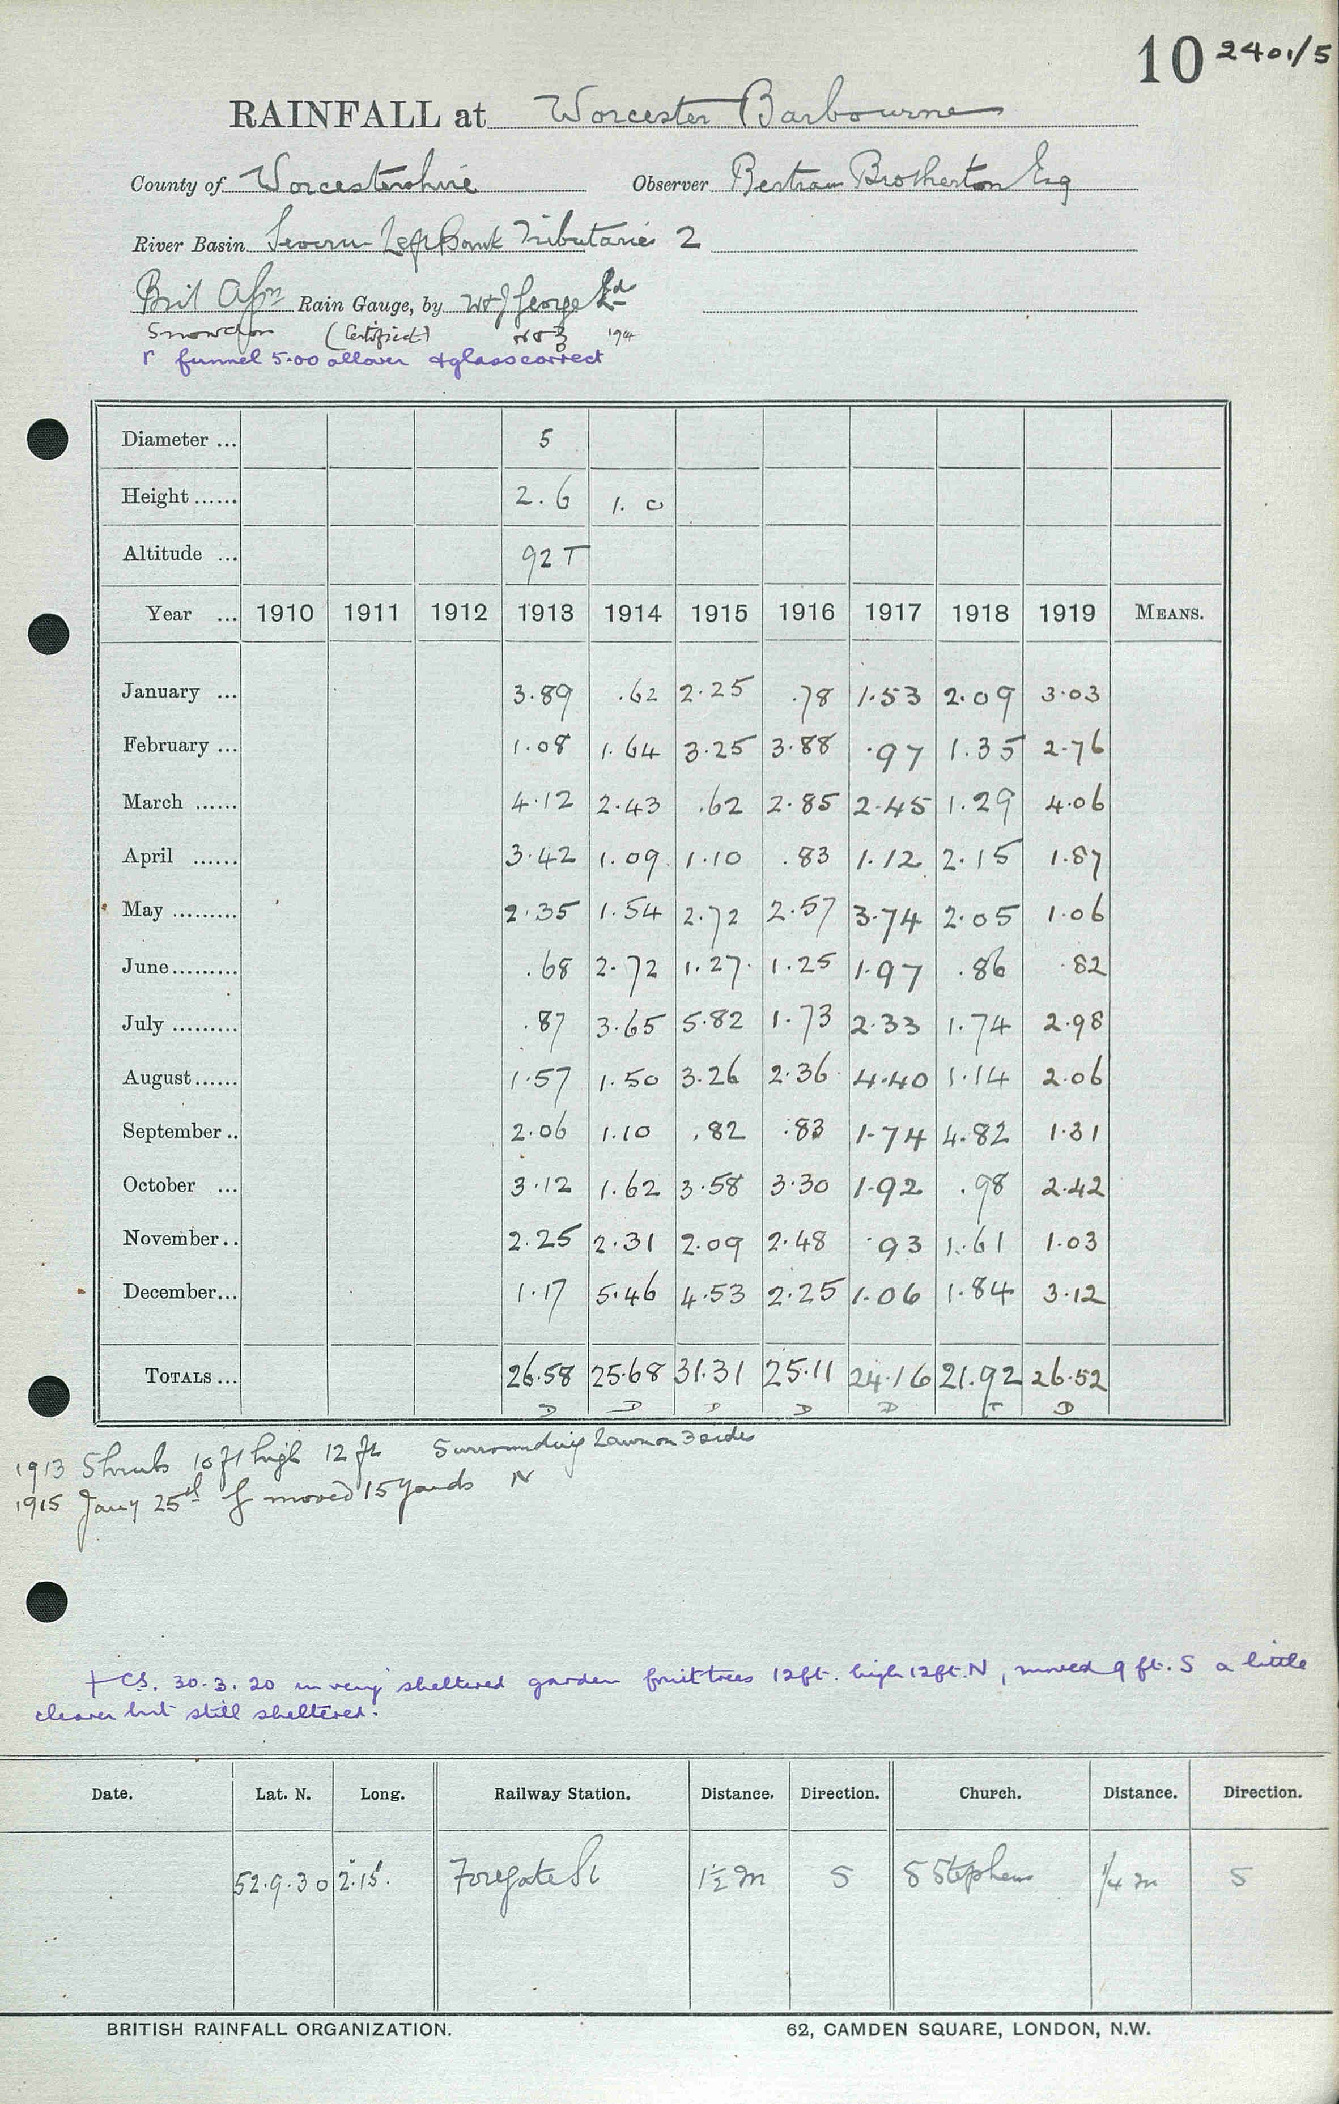 10 2401/5
RAINFALL at Worcester Barbourne
County of Worcestershire Observer Bertram Brotherton Esq
River Basin Severn - Left Bank Tributaries 2
Brit Assn Rain Gauge, by W & J George Ld
Snowdon (Certified)
funnel 5.00 all over & glass correct
Diameter ... 5
Height ...... 2.6 1.0
Altitude ... 92 T
Year ... 1910 1911 1912 1913 1914 1915 1916 1917 1918 1919 MEANS.
January ... 3.89 .62 2.25 .78 1.53 2.09 3.03
February ... 1.08 1.64 3.25 3.88 .97 1.35 2.76
March ...... 4.12 2.43 .62 2.85 2.45 1.29 4.06
April ...... 3.42 1.09 1.10 .83 1.12 2.15 1.87
May ......... 2.35 1.54 2.72 2.57 3.74 2.05 1.06
June ......... .68 2.72 1.27 1.25 1.97 .86 .82
July ......... .87 3.65 5.82 1.73 2.33 1.74 2.98
August ...... 1.57 1.50 3.26 2.36 4.40 1.14 2.06
September .. 2.06 1.10 .82 .83 1.74 4.82 1.31
October ... 3.12 1.62 3.58 3.30 1.92 .98 2.42
November .. 2.25 2.31 2.09 2.48 .93 1.61 1.03
December ... 1.17 5.46 4.53 2.25 1.06 1.84 3.12
TOTALS ... 26.58 25.68 31.31 25.11 24.16 21.92 26.52
D D D D D T D
1913 Shrubs 10 ft high 12 ft Surrounding Lawn on 3 sides
1915 Jany 25th g moved 15 yards N
CS. 30.3.20 in very sheltered garden fruit trees 12ft. high 12ft. N, moved 9 ft. S a little
clearer but still sheltered.
Date. Lat. N. Long. Railway Station. Distance. Direction. Church. Distance. Direction.
52.9.30 2.15. Foregate St 1½ m S S Stephens 1/4 m S
BRITISH RAINFALL ORGANIZATION. 62, CAMDEN SQUARE, LONDON, N.W.